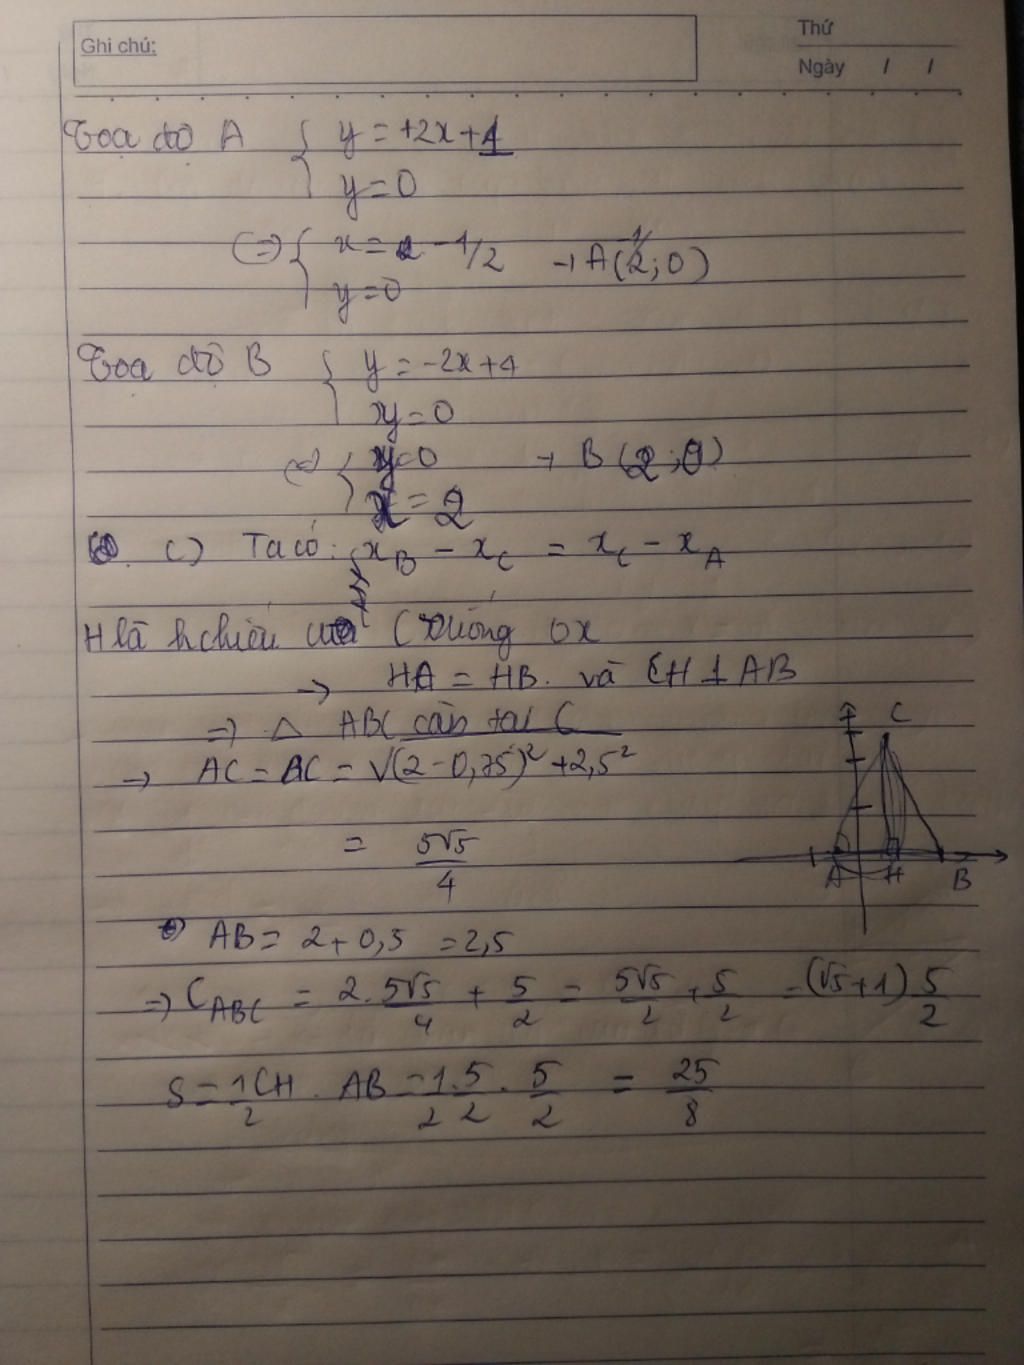 Ghi chú:
Thứ
Ngày / /
Toạ độ A { y = +2x + 1
y = 0
(=) { x = - 1/2 → A(1/2; 0)
y = 0
Toạ độ B { y = -2x + 4
y = 0
(=) { y = 0 → B (2; 0)
x = 2
c) Ta có: x_B - x_C = x_C - x_A
H là hchiếu của C xuống Ox
→ HA = HB. và CH ⊥ AB
=> △ ABC cân tại C
→ AC = BC = √(2 - 0,75)² + 2,5²
= 5√5/4
AB = 2 + 0,5 = 2,5
=> C_ABC = 2. 5√5/4 + 5/2 = 5√5/2 + 5/2 = (√5 + 1) 5/2
S = 1/2 CH . AB = 1/2 . 5/2 . 5/2 = 25/8
C
A H B